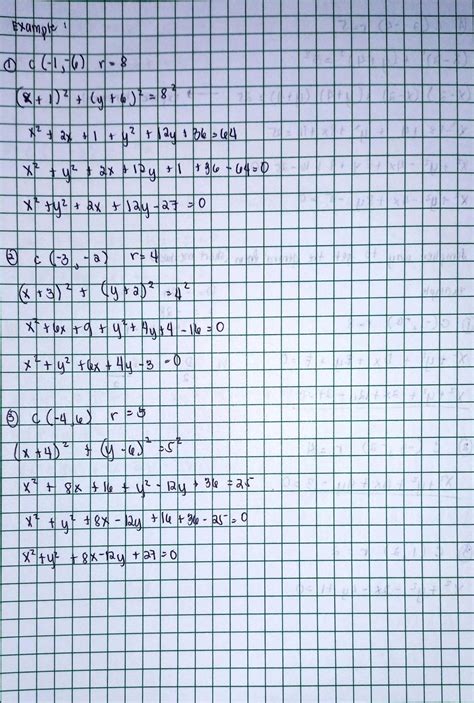 Example:
① C(-1,-6) r=8
(x+1)² + (y+6)² = 8²
x² + 2x + 1 + y² + 12y + 36 = 64
x² + y² + 2x + 12y + 1 + 36 - 64 = 0
x² + y² + 2x + 12y - 27 = 0
② C(-3,-2) r=4
(x+3)² + (y+2)² = 4²
x² + 6x + 9 + y² + 4y + 4 - 16 = 0
x² + y² + 6x + 4y - 3 = 0
③ C(-4,6) r=5
(x+4)² + (y-6)² = 5²
x² + 8x + 16 + y² - 12y + 36 = 25
x² + y² + 8x - 12y + 16 + 36 - 25 = 0
x² + y² + 8x - 12y + 27 = 0